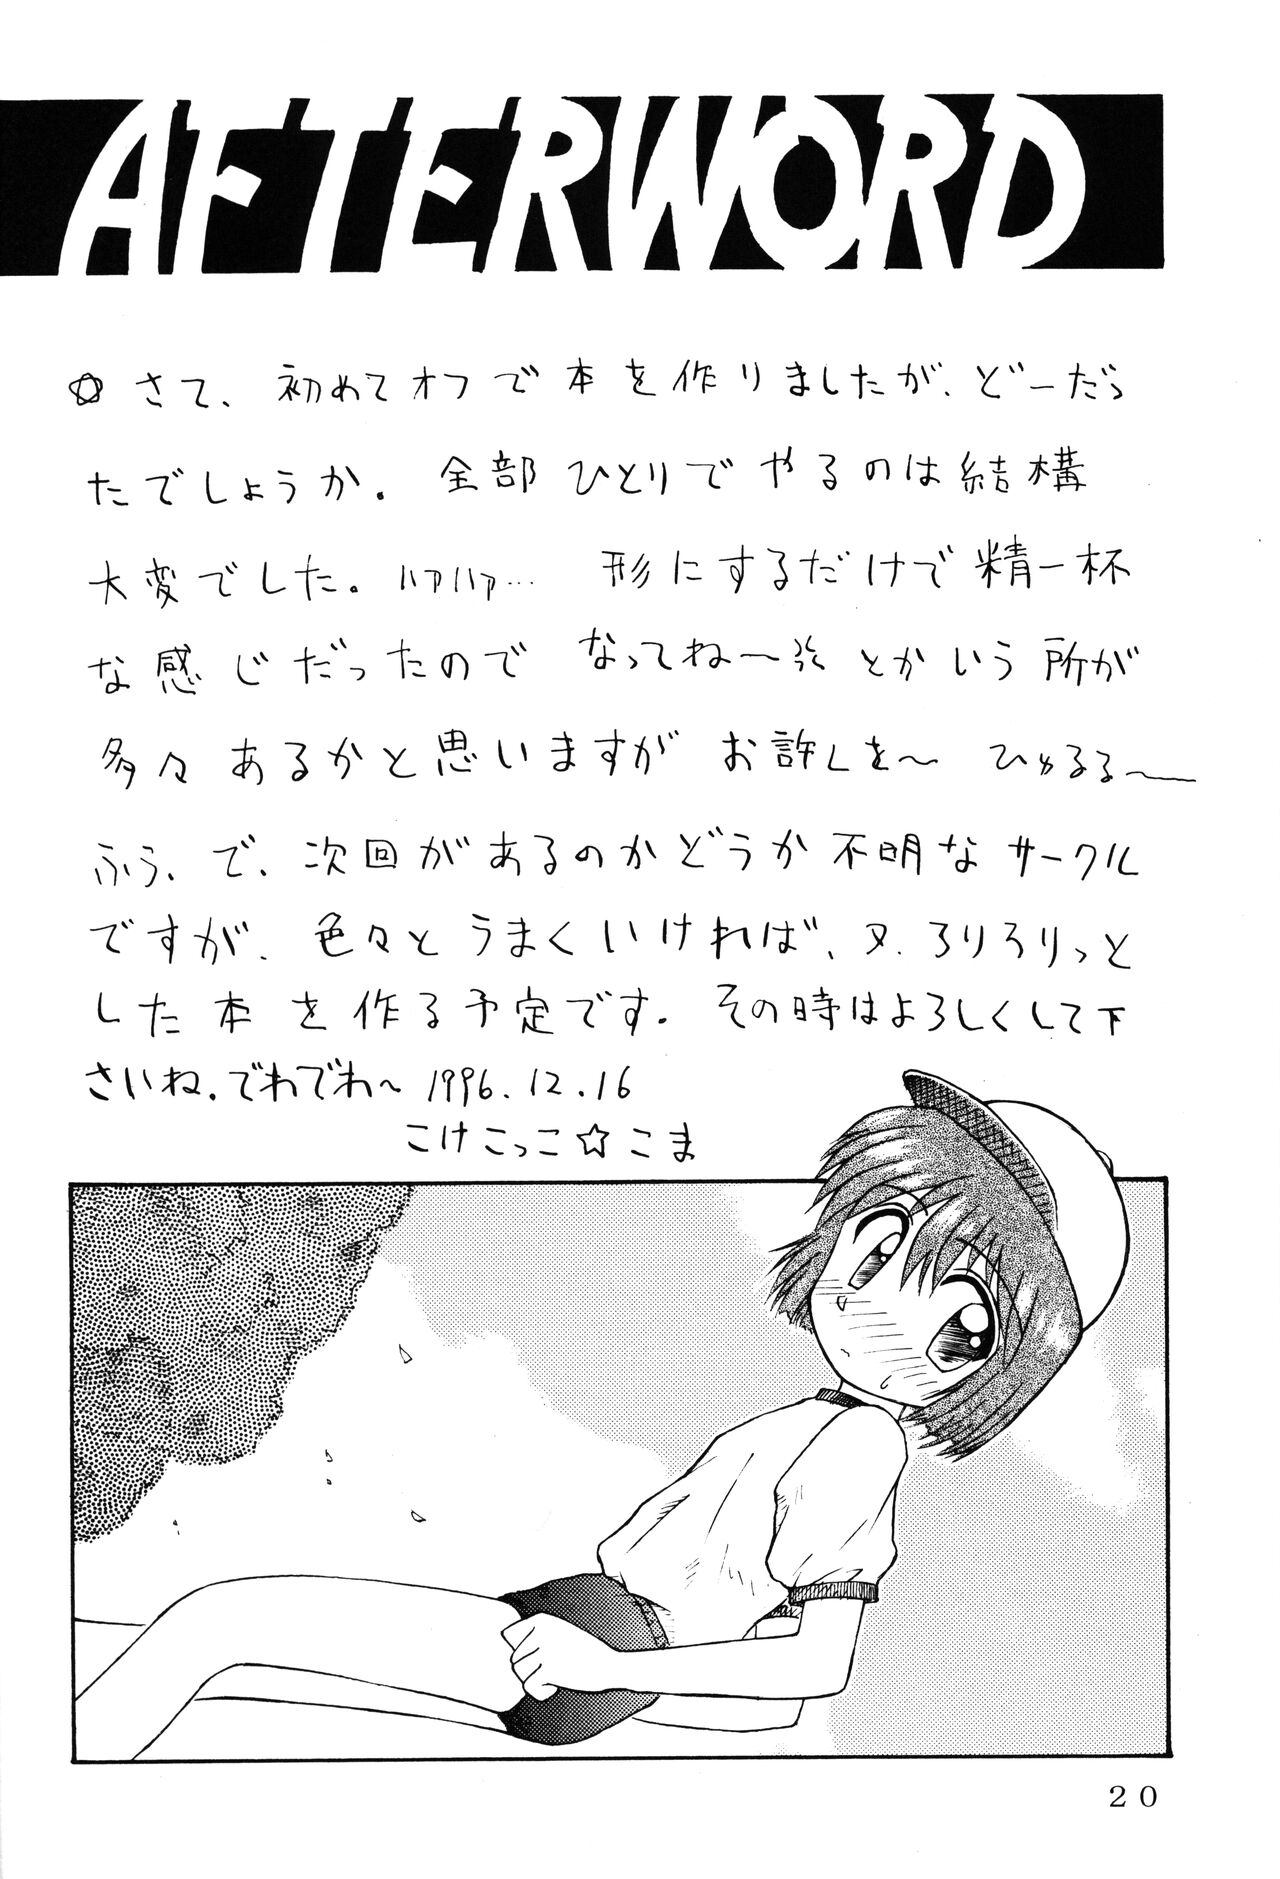 AFTERWORD
☆さて、初めてオフで本を作りましたが、どーだっ
たでしょうか。全部ひとりでやるのは結構
大変でした。ハァハァ… 形にするだけで精一杯
な感じだったので なってね〜 とかいう所が
多々あるかと思いますが お許しを〜 ひゅるる〜
ふぅ、で、次回があるのかどうか不明なサークル
ですが、色々とうまくいければ、又、ろりろりっと
した本を作る予定です。その時はよろしくして下
さいね。でわでわ〜 1996.12.16
こけこっこ☆こま
20